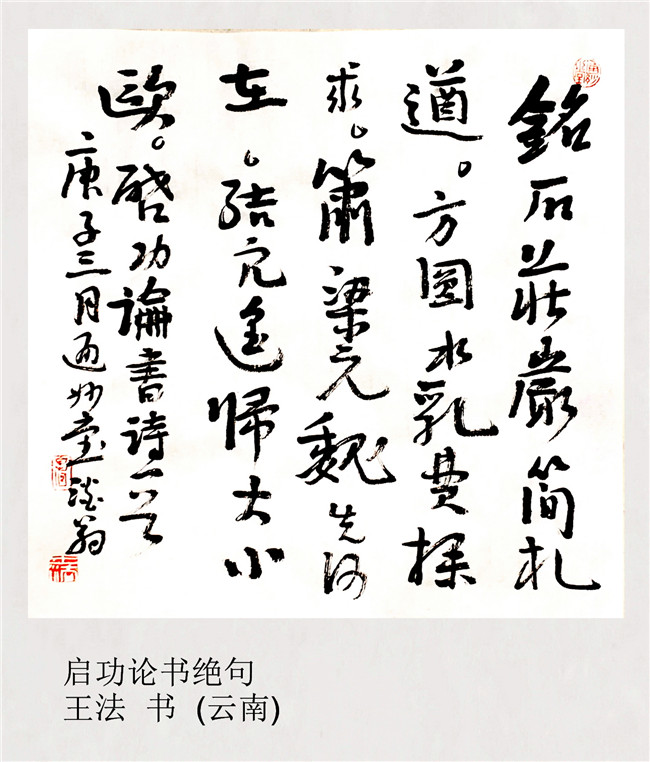 銘石莊嚴簡札
遒。方圓水乳費探
求。簫梁元魏先河
在。結穴遙歸大小
歐。啓功論書詩一首
庚子三月 妙 翁
启功论书绝句
王法 书 (云南)